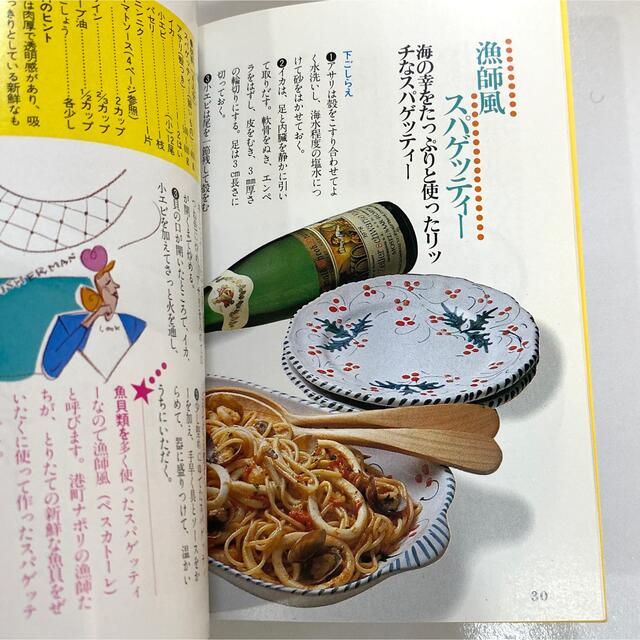 漁師風
スパゲッティー
海の幸をたっぷりと使ったリッ
チなスパゲッティー
下ごしらえ
❶アサリは殻をこすり合わせてよ
く水洗いし、海水程度の塩水につ
けて砂をはかせておく。
❷イカは、足と内臓を静かに引い
て取りだす。軟骨をぬき、エンペ
ラをはずし、皮をむき、3㎜厚さ
の輪切りにする。足は3㎝長さに
切っておく。
❸小エビは尾を一節残して殻をむ
30
イカ
小エビ
パセリ
ニンニク
1片
マトソース(4ページ参照)
2カップ
2/3カップ
1/2カップ
各少し
12尾
のヒント
は肉厚で透明感があり、吸
っきりとしている新鮮なも
❸貝の口が開いたところで、イカ、
小エビを加えてさっと火を通し、
ーを加え、手早く具とソースをか
らめて、器に盛りつけて、温かい
うちにいただく。
LOOK
魚貝類を多く使ったスパゲッティ
ーなので漁師風(ペスカトーレ)
と呼びます。港町ナポリの漁師た
ちが、とりたての新鮮な魚貝をぜ
いたくに使って作ったスパゲッテ